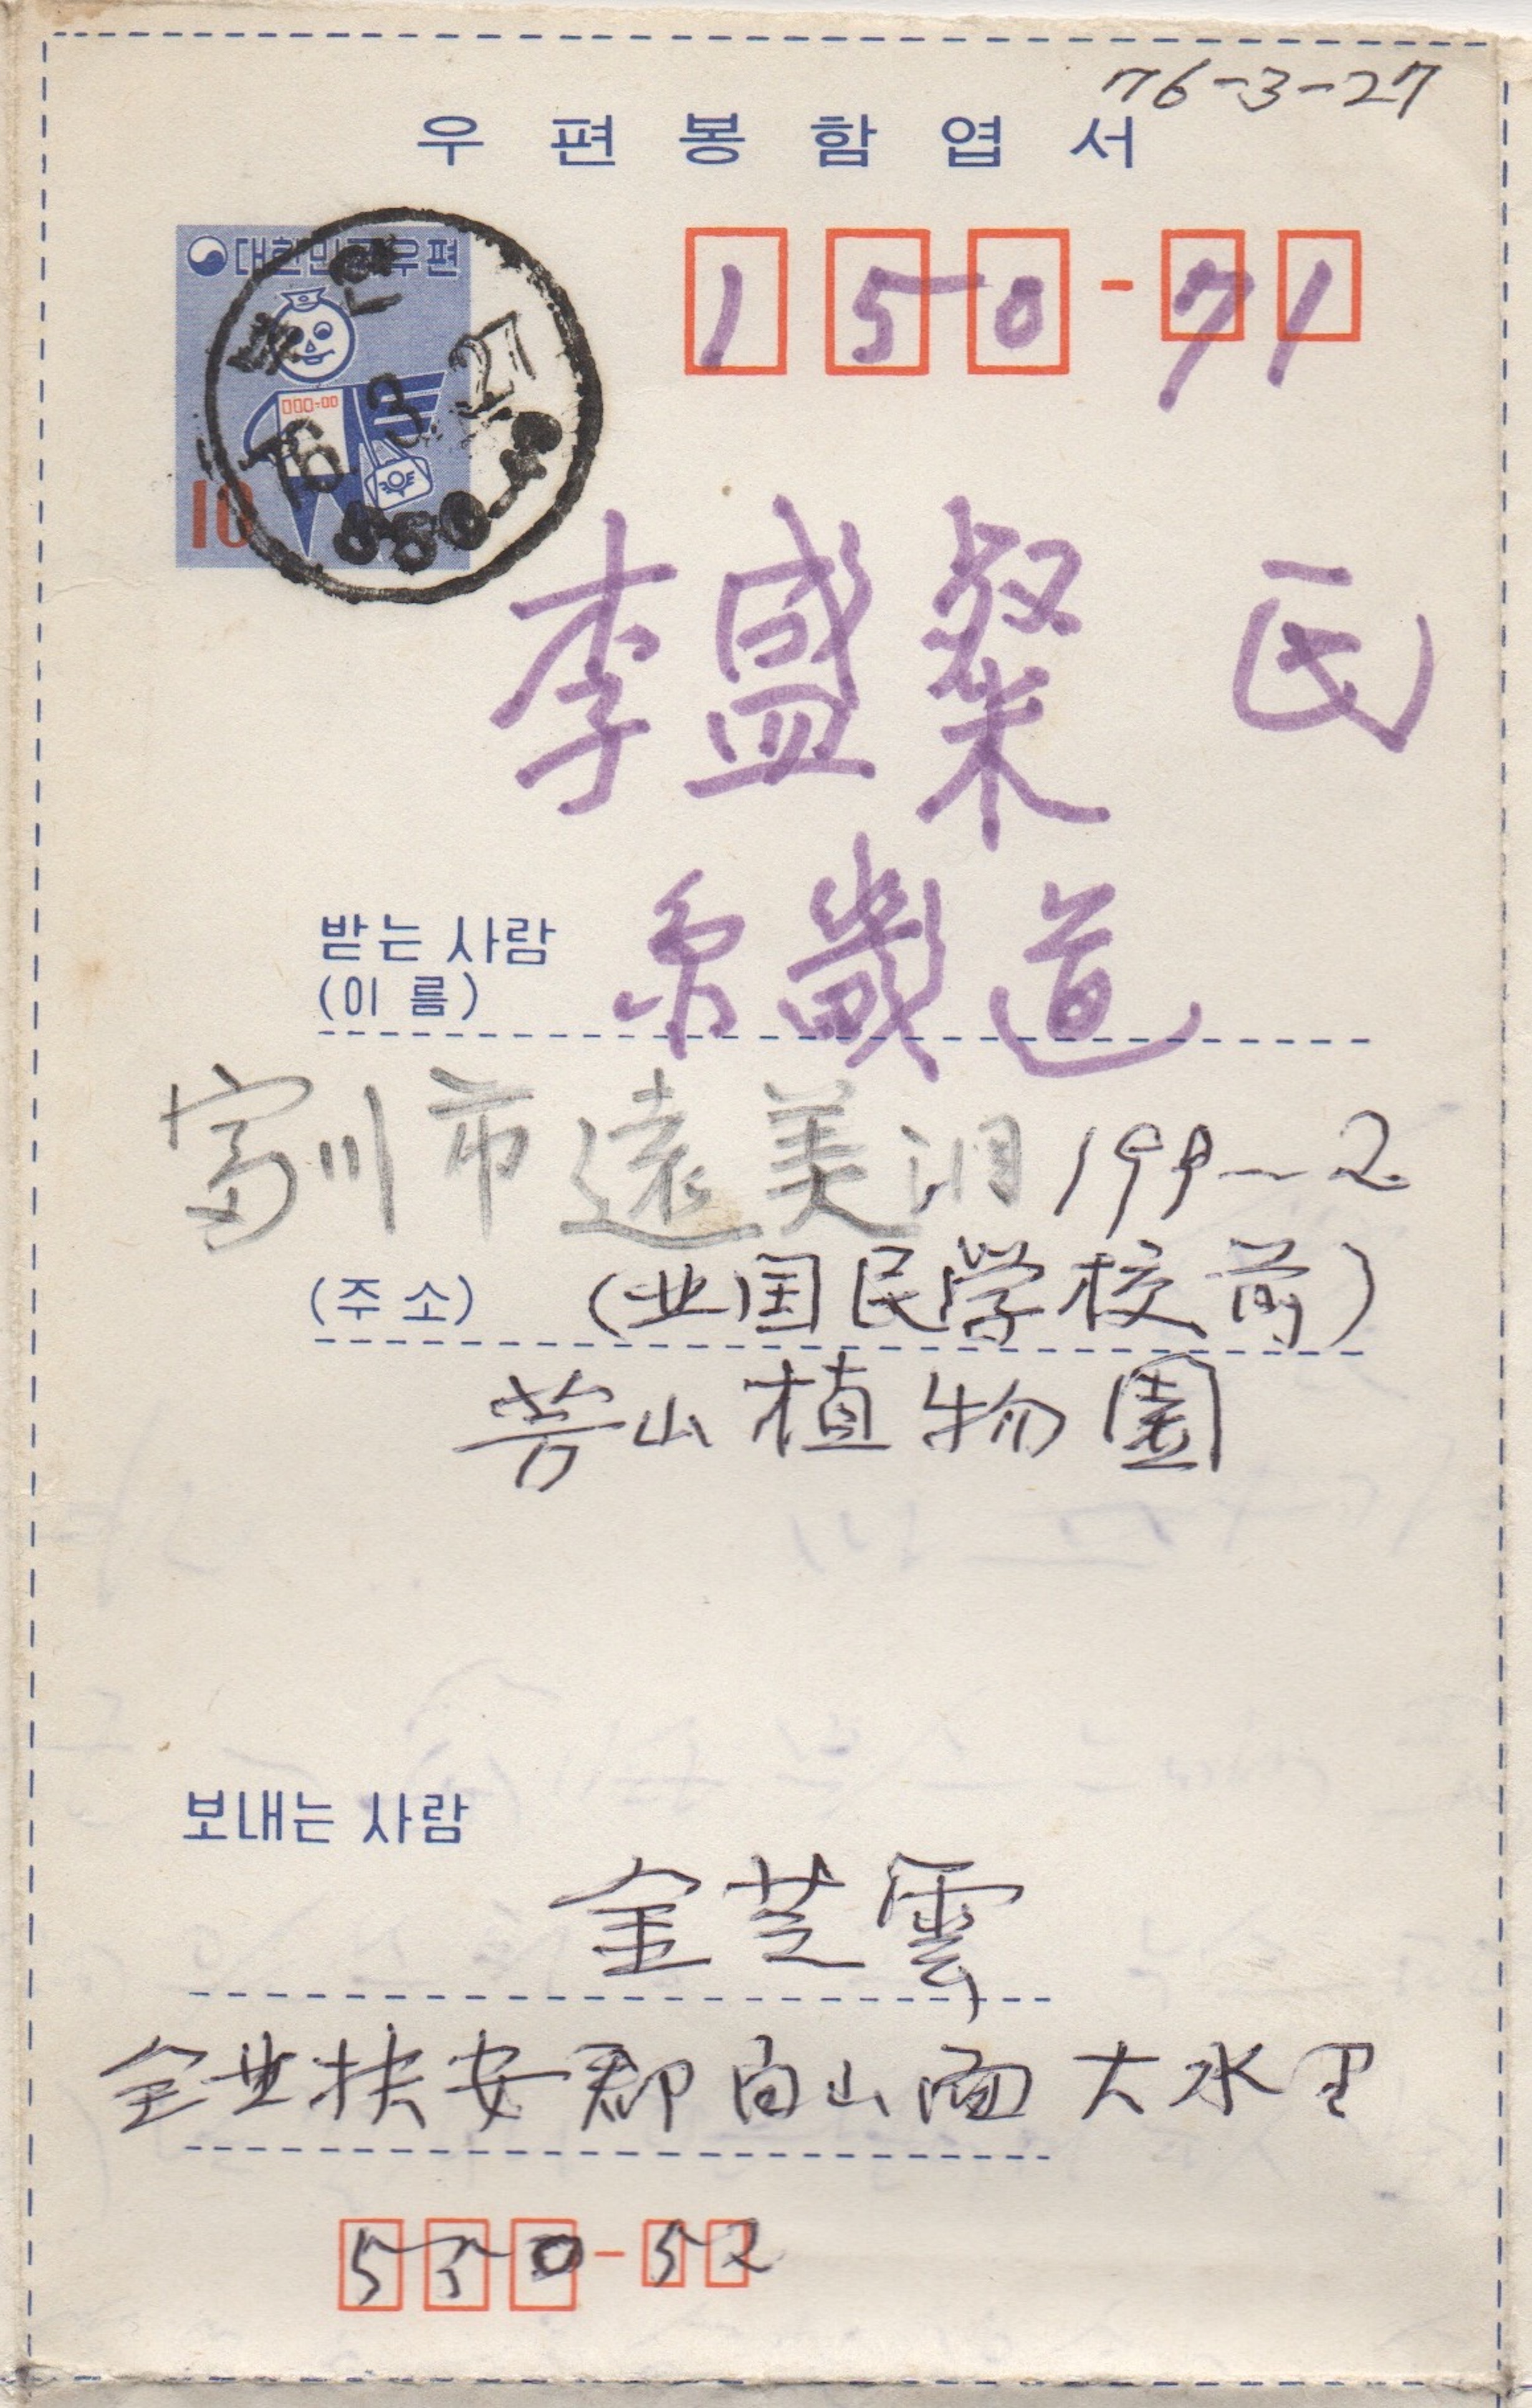 76-3-27
우편봉함엽서
대한민국우편
150-71
000-00
76.3.27
10
李盛粲 氏
京畿道
받는 사람
(이 름)
富川市遠美洞 199-2
(주 소) (北国民学校前)
芳山植物園
보내는 사람
金芝雲
全北扶安郡白山面大水里
550-52